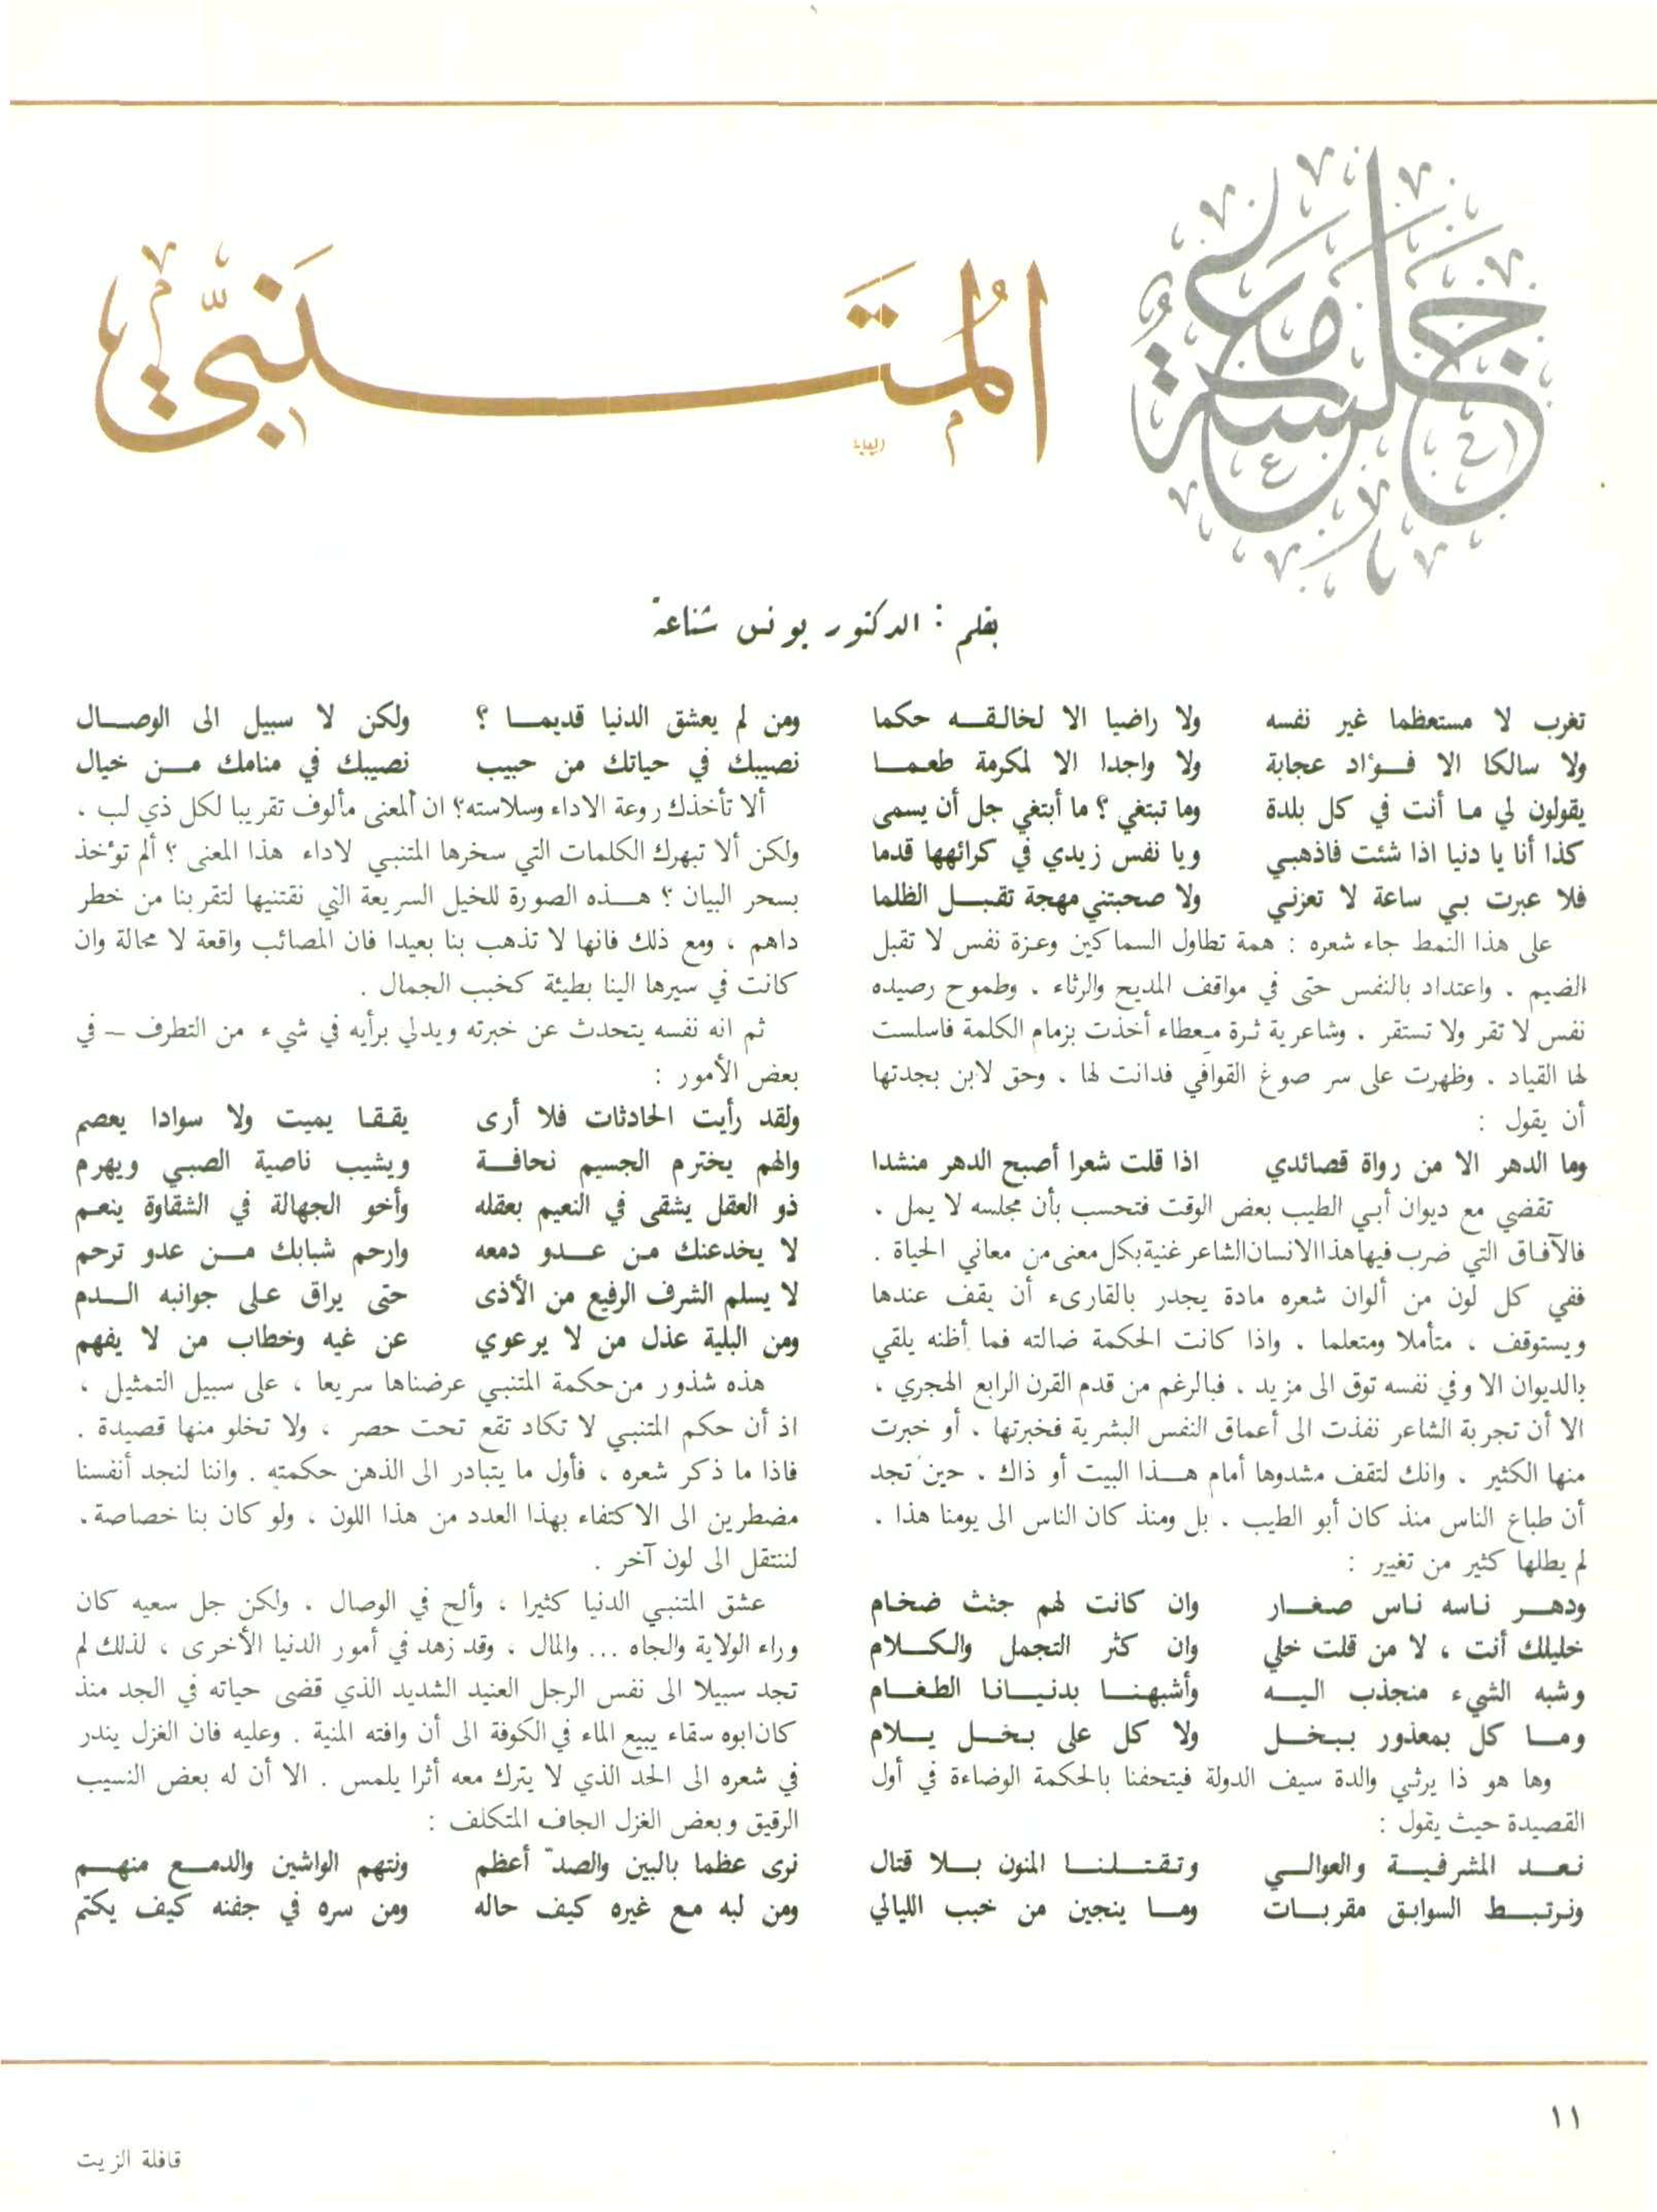 جلسة مع
المُتَنَبّي
بقلم : الدكتور يونس شناعة
تغرب لا مستعظما غير نفسه ولا راضيا الا لخالقه حكما
ولا سالكا الا فؤاد عجابة ولا واجدا الا لمكرمة طعما
يقولون لي ما أنت في كل بلدة وما تبتغي ؟ ما أبتغي جل أن يسمى
كذا أنا يا دنيا اذا شئت فاذهبي ويا نفس زيدي في كرائهها قدما
فلا عبرت بي ساعة لا تعزني ولا صحبتني مهجة تقبل الظلما
على هذا النمط جاء شعره : همة تطاول السماكين وعزة نفس لا تقبل
الضيم ، واعتداد بالنفس حتى في مواقف المديح والرثاء ، وطموح رصيده
نفس لا تقر ولا تستقر ، وشاعرية ثرة معطاء أخذت بزمام الكلمة فاسلست
لها القياد ، وظهرت على سر صوغ القوافي فدانت لها ، وحق لابن بجدتها
أن يقول :
وما الدهر الا من رواة قصائدي اذا قلت شعرا أصبح الدهر منشدا
تقضي مع ديوان أبي الطيب بعض الوقت فتحسب بأن مجلسه لا يمل ،
فالآفاق التي ضرب فيها هذا الانسان الشاعر غنية بكل معنى من معاني الحياة .
ففي كل لون من ألوان شعره مادة يجدر بالقارىء أن يقف عندها
ويستوقف ، متأملا ومتعلما ، واذا كانت الحكمة ضالته فما أظنه يلقي
بالديوان الا وفي نفسه توق الى مزيد ، فبالرغم من قدم القرن الرابع الهجري ،
الا أن تجربة الشاعر نفذت الى أعماق النفس البشرية فخبرتها ، أو خبرت
منها الكثير ، وانك لتقف مشدوها أمام هذا البيت أو ذاك ، حين تجد
أن طباع الناس منذ كان أبو الطيب ، بل ومنذ كان الناس الى يومنا هذا ،
لم يطلها كثير من تغيير :
ودهر ناسه ناس صغار وان كانت لهم جثث ضخام
خليلك أنت ، لا من قلت خلي وان كثر التجمل والكلام
وشبه الشيء منجذب اليه وأشبهنا بدنيانا الطغام
وما كل بمعذور ببخل ولا كل على بخل يلام
وها هو ذا يرثي والدة سيف الدولة فيتحفنا بالحكمة الوضاءة في أول
القصيدة حيث يقول :
نعد المشرفية والعوالي وتقتلنا المنون بلا قتال
ونرتبط السوابق مقربات وما ينجين من خبب الليالي
ومن لم يعشق الدنيا قديما ؟ ولكن لا سبيل الى الوصال
نصيبك في حياتك من حبيب نصيبك في منامك من خيال
ألا تأخذك روعة الاداء وسلاسته ؟ ان المعنى مألوف تقريبا لكل ذي لب ،
ولكن ألا تبهرك الكلمات التي سخرها المتنبي لاداء هذا المعنى ؟ ألم تؤخذ
بسحر البيان ؟ هذه الصورة للخيل السريعة التي نقتنيها لتقربنا من خطر
داهم ، ومع ذلك فانها لا تذهب بنا بعيدا فان المصائب واقعة لا محالة وان
كانت في سيرها الينا بطيئة كخبب الجمال .
ثم انه نفسه يتحدث عن خبرته ويدلي برأيه في شيء من التطرف – في
بعض الأمور :
ولقد رأيت الحادثات فلا أرى يققا يميت ولا سوادا يعصم
والهم يخترم الجسيم نحافة ويشيب ناصية الصبي ويهرم
ذو العقل يشقى في النعيم بعقله وأخو الجهالة في الشقاوة ينعم
لا يخدعنك من عدو دمعه وارحم شبابك من عدو ترحم
لا يسلم الشرف الرفيع من الأذى حتى يراق على جوانبه الدم
ومن البلية عذل من لا يرعوي عن غيه وخطاب من لا يفهم
هذه شذور من حكمة المتنبي عرضناها سريعا ، على سبيل التمثيل ،
اذ أن حكم المتنبي لا تكاد تقع تحت حصر ، ولا تخلو منها قصيدة .
فاذا ما ذكر شعره ، فأول ما يتبادر الى الذهن حكمته . واننا لنجد أنفسنا
مضطرين الى الاكتفاء بهذا العدد من هذا اللون ، ولو كان بنا خصاصة ،
لننتقل الى لون آخر .
عشق المتنبي الدنيا كثيرا ، وألح في الوصال ، ولكن جل سعيه كان
وراء الولاية والجاه ... والمال ، وقد زهد في أمور الدنيا الأخرى ، لذلك لم
تجد سبيلا الى نفس الرجل العنيد الشديد الذي قضى حياته في الجد منذ
كان ابوه سقاء يبيع الماء في الكوفة الى أن وافته المنية . وعليه فان الغزل يندر
في شعره الى الحد الذي لا يترك معه أثرا يلمس . الا أن له بعض النسيب
الرقيق وبعض الغزل الجاف المتكلف :
نرى عظما بالبين والصدّ أعظم ونتهم الواشين والدمع منهم
ومن لبه مع غيره كيف حاله ومن سره في جفنه كيف يكتم
١١
قافلة الزيت